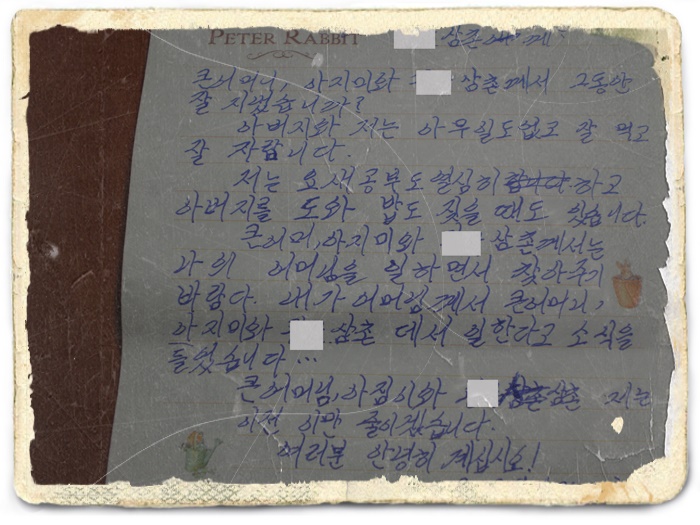 PETER RABBIT
삼촌에게
큰어머니, 아지미와 삼촌께서 그동안
잘 지냈습니까?
아버지와 저는 아무일도없고 잘 먹고
잘 자랍니다.
저는 요새공부도열심히합니다.하고
아버지를 도와 밥도 짖을 때도 있습니다.
큰어머,아지미와 삼촌께서는
나의 어머님을 일하면서 찾아주기
바람다. 내가 어머님께서 큰어머니,
아지미와 삼촌 데서 일한다고 소식을
들었습니다...
큰어머님,아짐이와 삼촌 저는
이전 이만 줄이겠습니다.
여러분 안녕히 계십시오!